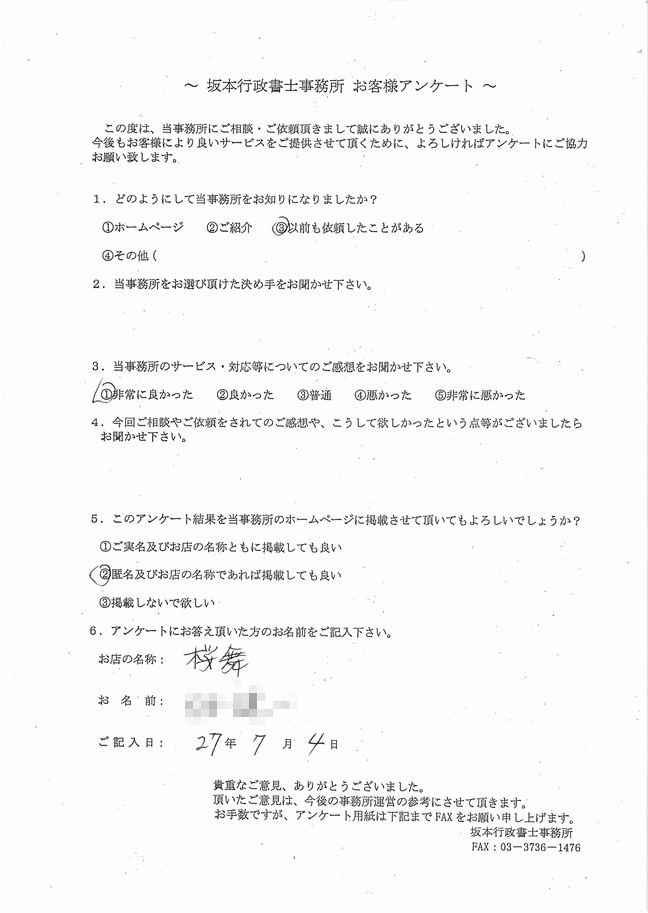 ～ 坂本行政書士事務所 お客様アンケート ～
この度は、当事務所にご相談・ご依頼頂きまして誠にありがとうございました。
今後もお客様により良いサービスをご提供させて頂くために、よろしければアンケートにご協力
お願い致します。
１．どのようにして当事務所をお知りになりましたか？
①ホームページ　②ご紹介　③以前も依頼したことがある
④その他（　　　）
２．当事務所をお選び頂けた決め手をお聞かせ下さい。
３．当事務所のサービス・対応等についてのご感想をお聞かせ下さい。
①非常に良かった　②良かった　③普通　④悪かった　⑤非常に悪かった
４．今回ご相談やご依頼をされてのご感想や、こうして欲しかったという点等がございましたら
お聞かせ下さい。
５．このアンケート結果を当事務所のホームページに掲載させて頂いてもよろしいでしょうか？
①ご実名及びお店の名称ともに掲載しても良い
②匿名及びお店の名称であれば掲載しても良い
③掲載しないで欲しい
６．アンケートにお答え頂いた方のお名前をご記入下さい。
お店の名称： 桜舞
お 名 前：
ご記入日： 27年 7 月 4 日
貴重なご意見、ありがとうございました。
頂いたご意見は、今後の事務所運営の参考にさせて頂きます。
お手数ですが、アンケート用紙は下記まで FAX をお願い申し上げます。
坂本行政書士事務所
FAX：03－3736－1476